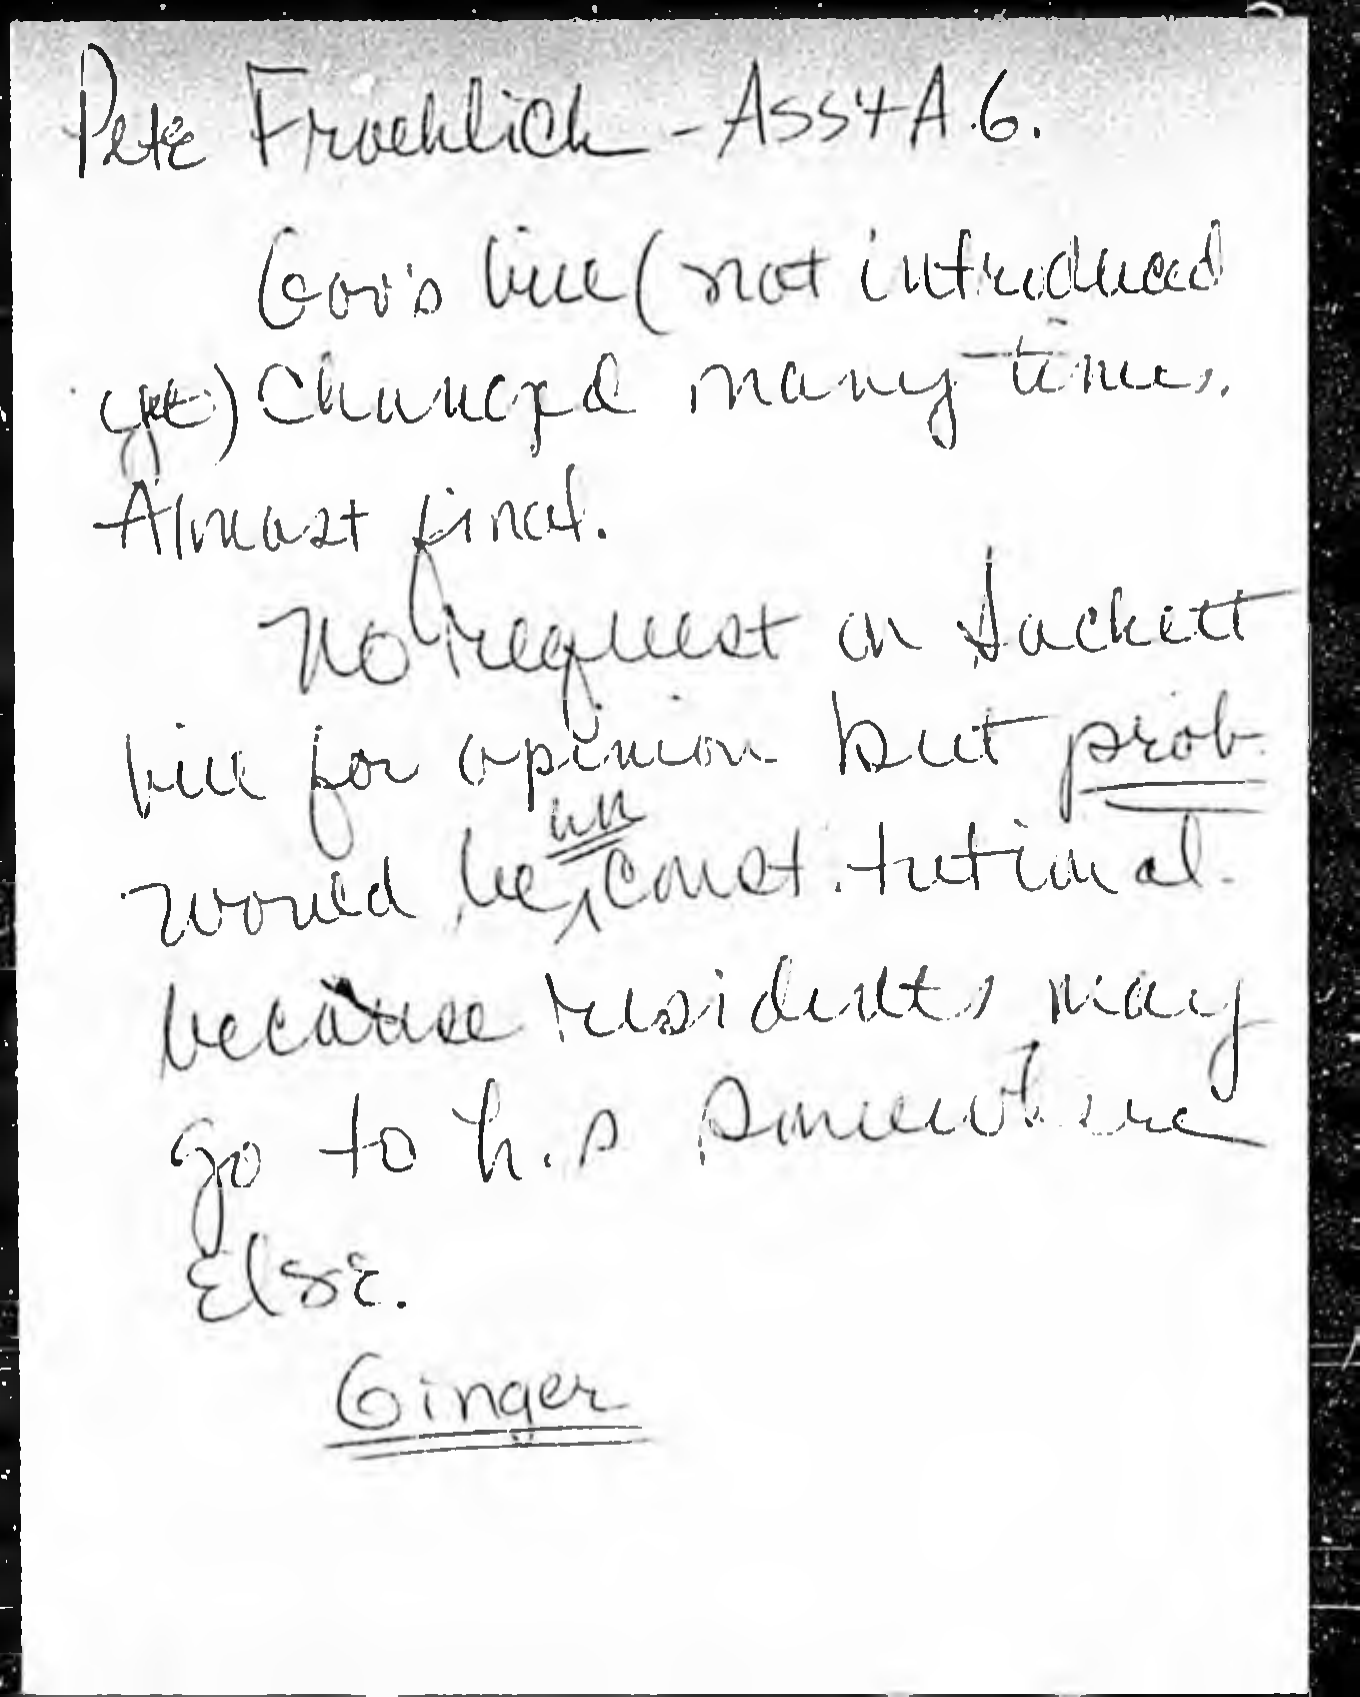 Pete Froehlich - Ass't A.G.
Gov's bill (not introduced
yet) Changed many times.
Almost final.
No request on Sackett
bill for opinion but prob
would be unconstitutional
because residents may
go to h.s somewhere
else.
Ginger